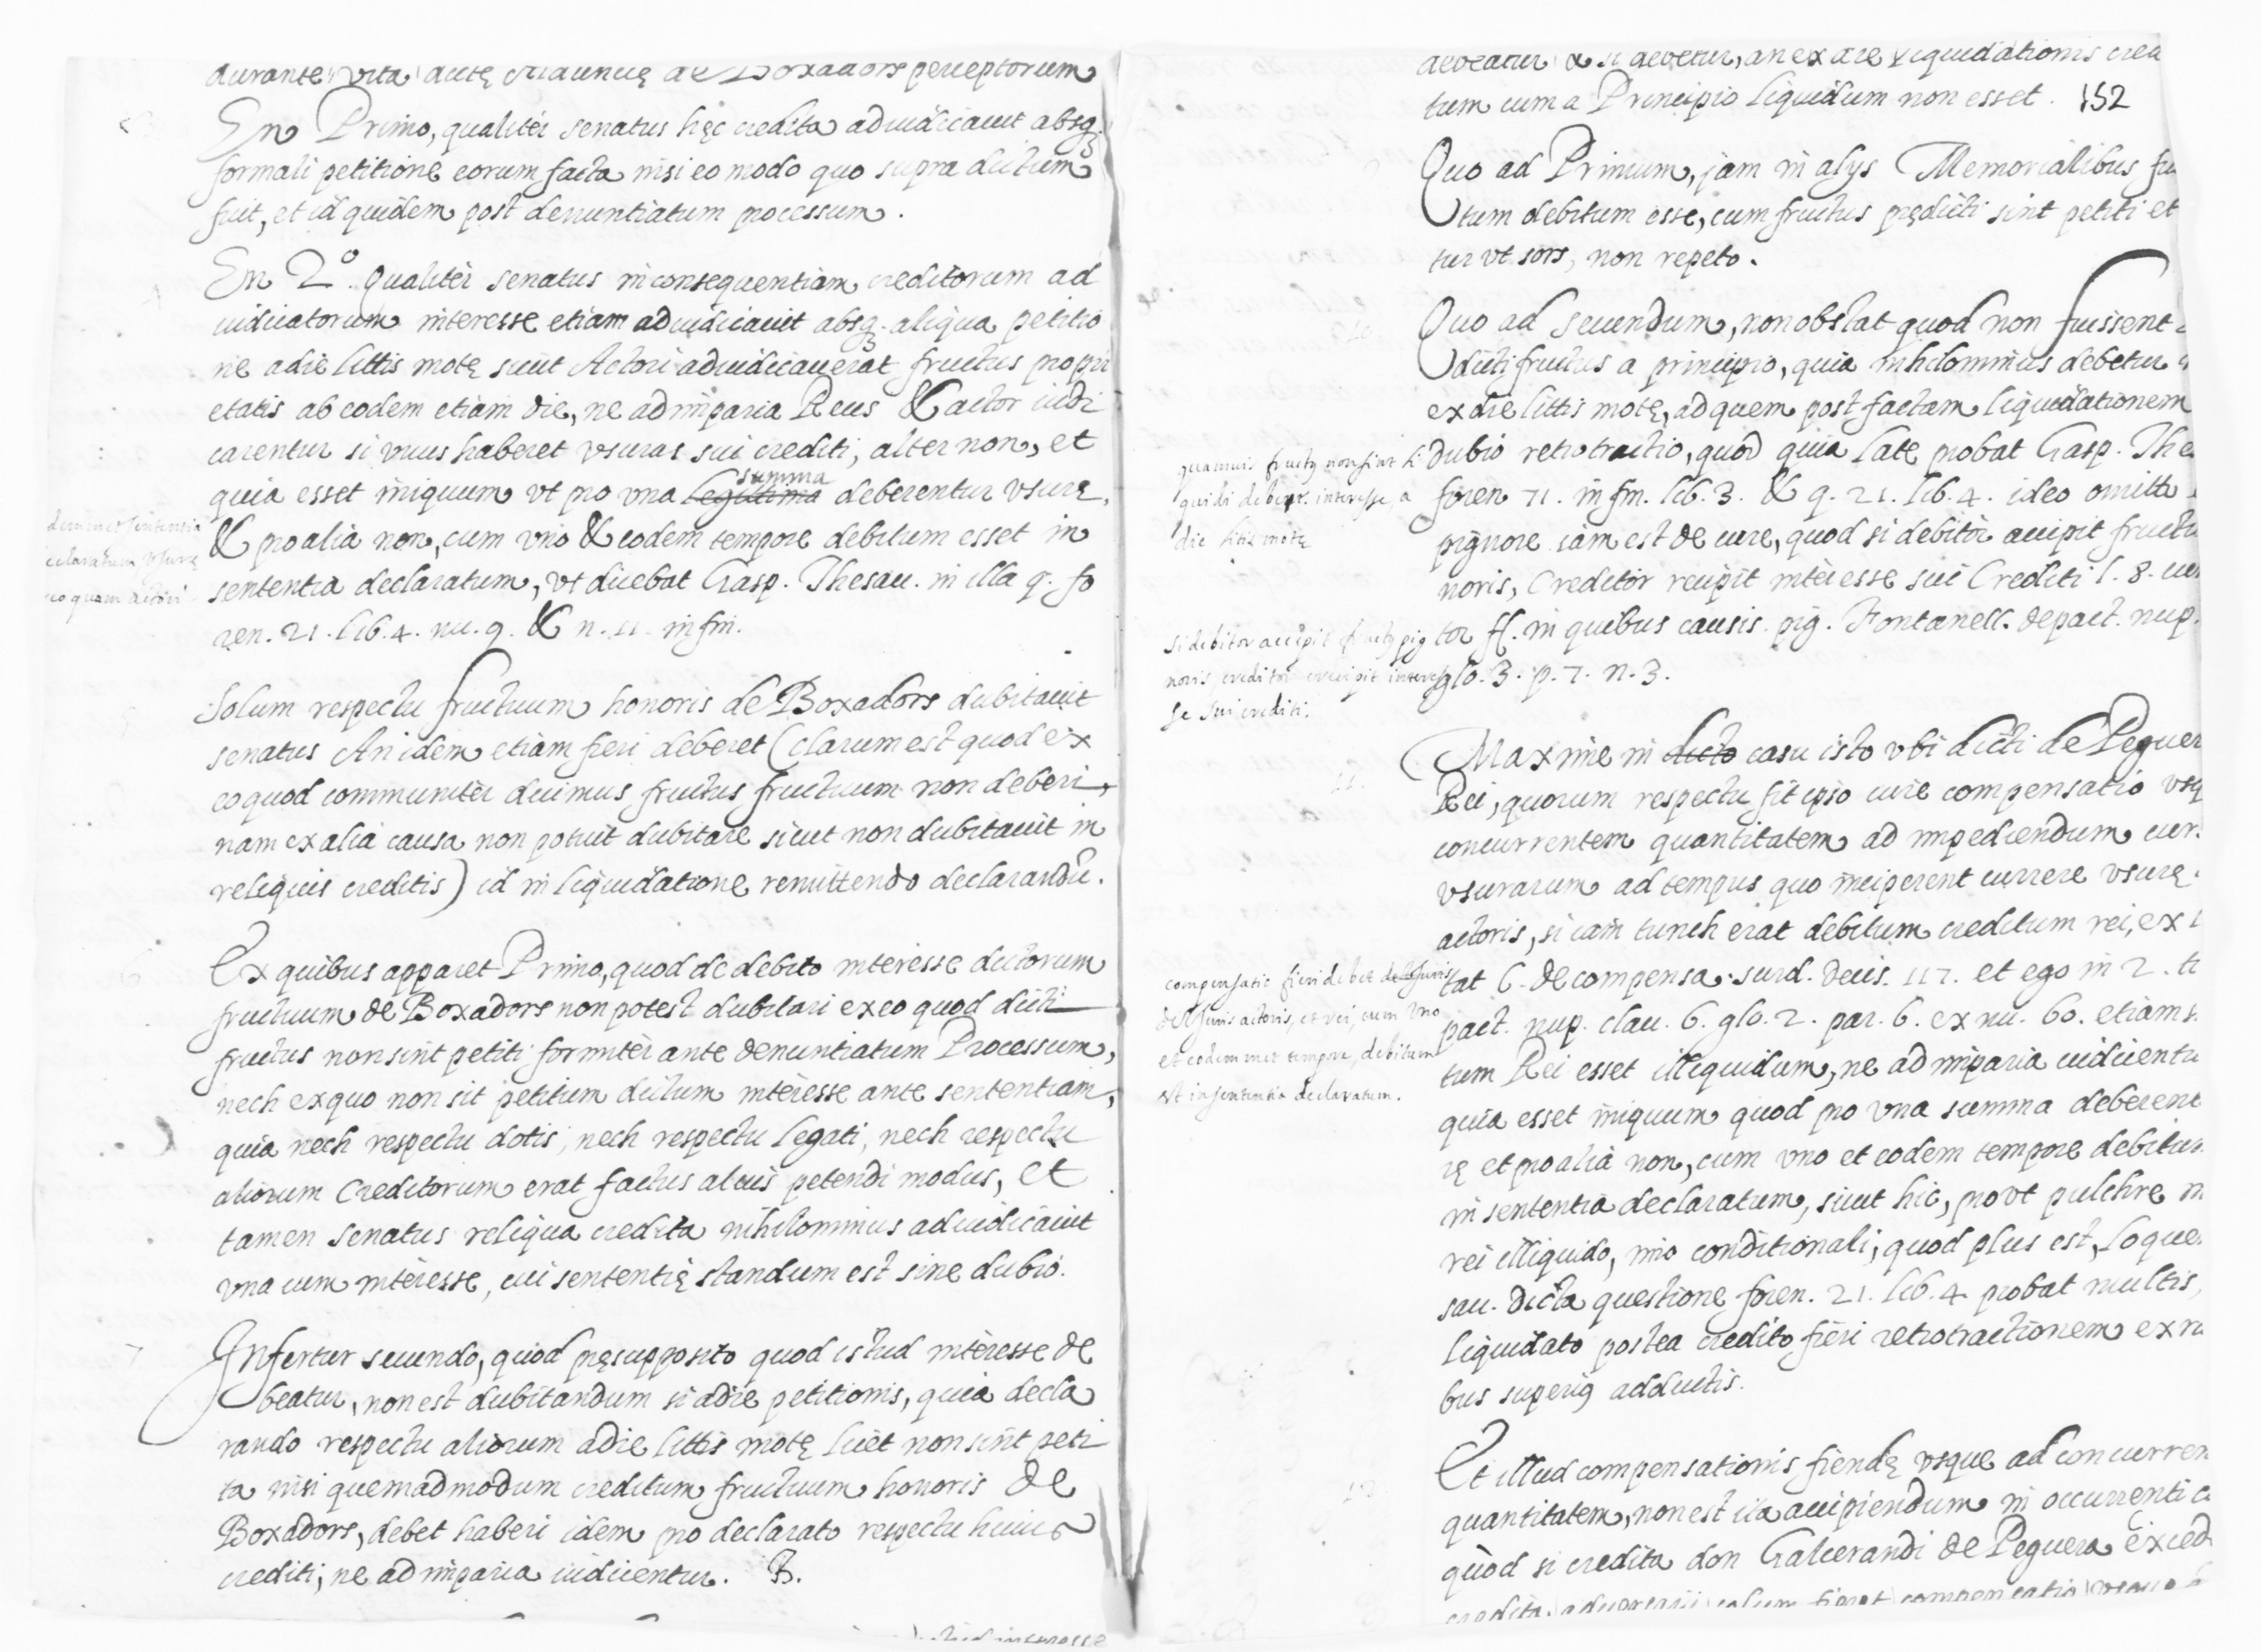 durante vita dictę Alduncię de Boxadors perceptorum
En Primo, qualiter senatus hęc credita adiudicauit absq.
formali petitione eorum facta nisi eo modo quo supra dictum
fuit, et id quidem post denuntiatum processum.
En 2.º Qualiter senatus in consequentiam creditorum ad
iudicatorum interesse etiam adiudicauit absq. aliqua petitio
ne a die littis motę sicut Actori adiudicauerat fructus propri
etatis ab eodem etiam die, ne ad imparia Reus & actor iudi
carentur si vnus haberet vsuras sui crediti, alter non, et
summa
quia esset iniquum vt pro vna legittima deberentur vsurę,
& pro alia non, cum vno & eodem tempore debitum esset in
sententia declaratum, vt dicebat Gasp. Thesau. in illa q. fo
ren. 21. lib. 4. nu. 9. & n. 11. in fin.
Solum respectu fructuum honoris de Boxadors dubitauit
senatus An idem etiam fieri deberet (clarum est quod ex
eo quod communiter dicimus fructus fructuum non deberi,
nam ex alia causa non potuit dubitare sicut non dubitauit in
reliquis creditis) id in liquidatione remittendo declarandū.
Ex quibus apparet Primo, quod de debito interesse dictorum
fructuum de Boxadors non potest dubitari ex eo quod dicti
fructus non sint petiti formiter ante denuntiatum Processum,
nech ex quo non sit petitum dictum interesse ante sententiam,
quia nech respectu dotis, nech respectu legati, nech respectu
aliorum Creditorum erat factus alius petendi modus, et
tamen senatus reliqua credita nihilominus adiudicauit
vna cum interesse, cui sententię standum est sine dubio.
Infertur secundo, quod pręsupposito quod istud interesse de
beatur, non est dubitandum si a die petitionis, quia decla
rando respectu aliorum a die littis motę licet non sint peti
ta nisi quemadmodum creditum fructuum honoris de
Boxadors, debet haberi idem pro declarato respectu huius
crediti, ne ad imparia iudicentur. B.
istud interesse
sententia
declaratum vsurę
quam actori
debeatur & si debetur, an ex die liquidationis cred
tum cum a Principio liquidum non esset. 152
Quo ad Primum, jam in alijs Memorialibus fu
tum debitum esse, cum fructus prędicti sint petiti et
tur vt sors, non repeto.
Quo ad secundum, non obstat quod non fuissent
dicti fructus a principio, quia nihilominus debetur
ex die littis motę, ad quem post factam liquidationem
dubio retrotractio, quod quia late probat Gasp. The
foren 71. in fin. lib. 3. & q. 21. lib. 4. ideo omitto
pignore iam est de iure, quod si debitor accipit fructu
noris, Creditor recipit interesse sui Crediti l. 8.
tor ff. in quibus causis pig. Fontanell. de pact. nup.
glo. 3. p. 7. n. 3.
quamuis fructꝰ non sint li
quidi debetur interesse, a
die litis motę
si debitor accipit fructꝰ pig
noris creditor recipit interes
se sui crediti.
Maxime in dicto casu isto vbi dicti de Peguer
Rei, quorum respectu fit ipso iure compensatio vsq
concurrentem quantitatem ad impediendum cur
vsurarum ad tempus quo inciperent currere vsurę
actoris, si iam tunch erat debitum creditum rei, ex
tat C. de compensa. surd. decis. 117. et ego in 2. t
pact. nup. clau. 6. glo. 2. par. 6. ex nu. 60. etiam s
tum Rei esset illiquidum, ne ad imparia iudicentu
quia esset iniquum quod pro vna summa deberent
rę et pro alia non, cum vno et eodem tempore debitum
in sententia declaratum, sicut hic, prout pulchre in
rei illiquido, imo conditionali, quod plus est, loque
sau. dicta questione foren. 21. lib. 4 probat multis,
liquidato postea credito fieri retrotractionem ex ra
bus superiꝰ adductis.
compensatio fieri debet
actoris, et rei, cum vno
et eodemmet tempore, debitum
vt in sententia declaratum.
Et illud compensationis fiendę vsque ad concurren
quantitatem, non est ita accipiendum in occurrenti c
quod si credita don Galcerandi de Peguera exced
credita aduersarii solum fieret compensatio vsque